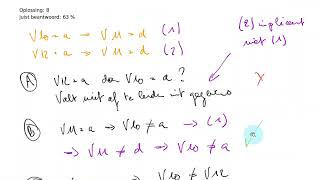 Oplossing: B
Juist beantwoord: 63 %
V10 = a → V11 = d (1)
V12 = a → V11 = d (2)
(2) impliceert
niet (1)
A V12 = a dan V10 = a ?
Valt niet af te leiden uit gegevens
B V11 = a → V10 ≠ a → (1)
→ V11 ≠ d → V10 ≠ a
→ V10 ≠ V12